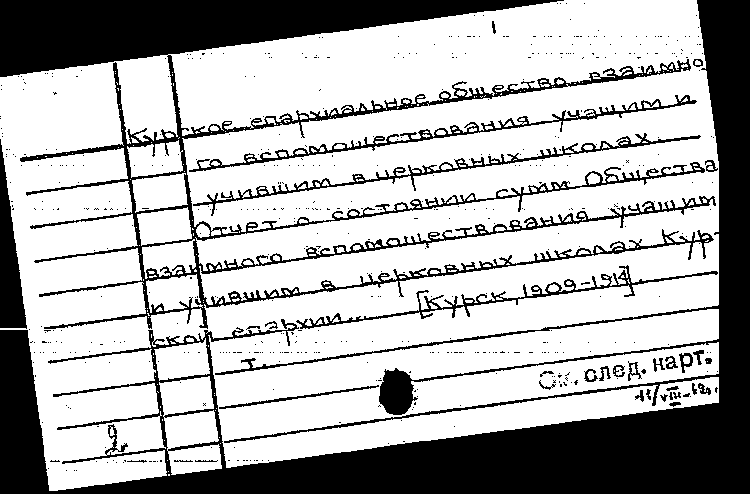 Курское епархиальное общество взаимно
го вспомоществования учащим и
учившим в церковных школах.
Отчет о состоянии сумм Общества
взаимного вспомоществования учащим
и учившим в церковных школах Кур-
ской епархии... [Курск, 1909-1914].
т.
См. след. карт.